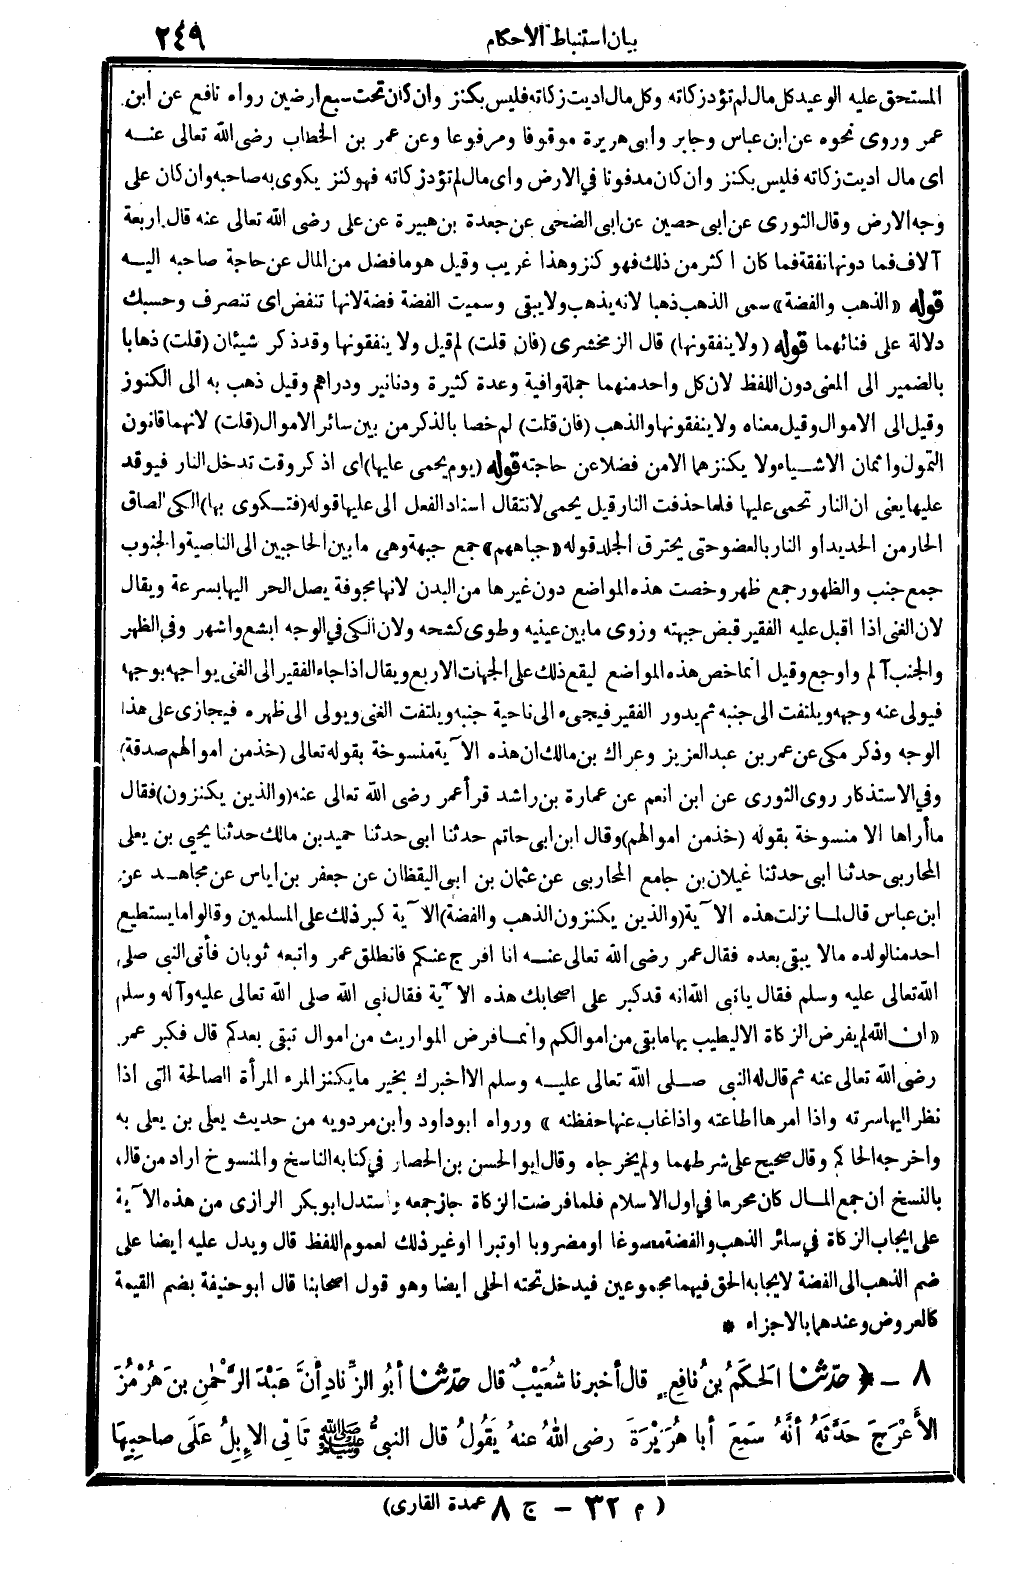 بيان استنباط الأحكام
٢٤٩
المستحق عليه الوعيد كل مال لم تؤد زكاته وكل مال اديت زكاته فليس بكنز وان كان تحت سبع ارضين رواه نافع عن ابن
عمر وروى نحوه عن ابن عباس وجابر وابى هريرة موقوفا ومرفوعا وعن عمر بن الخطاب رضى الله تعالى عنه
اى مال اديت زكاته فليس بكنز وان كان مدفونا في الارض واى مال لم تؤد زكاته فهو كنز يكوى به صاحبه وان كان على
وجه الارض وقال الثورى عن ابى حصين عن ابى الضحى عن جعدة بن هبيرة عن على رضى الله تعالى عنه قال اربعة
آلاف فما دونها نفقة فما كان اكثر من ذلك فهو كنز وهذا غريب وقيل هو ما فضل من المال عن حاجة صاحبه اليه
قوله «الذهب والفضة» سمى الذهب ذهبا لانه يذهب ولا يبقى وسميت الفضة فضة لانها تنفض اى تنصرف وحسبك
دلالة على فنائهما قوله (ولا ينفقونها) قال الزمخشرى (فان قلت) لم قيل ولا ينفقونها وقد ذكر شيئان (قلت) ذهابا
بالضمير الى المعنى دون اللفظ لان كل واحد منهما جملة وافية وعدة كثيرة ودنانير ودراهم وقيل ذهب به الى الكنوز
وقيل الى الاموال وقيل معناه ولا ينفقونها والذهب (فان قلت) لم خصا بالذكر من بين سائر الاموال (قلت) لانهما قانون
التمول واثمان الاشياء ولا يكنزهما الا من فضلا عن حاجته قوله (يوم يحمى عليها) اى اذكر وقت تدخل النار فيوقد
عليها يعنى ان النار تحمى عليها فلما حذفت النار قيل يحمى لانتقال اسناد الفعل الى عليها قوله (فتكوى بها) الكى الصاق
الحار من الحديد او النار بالعضو حتى يحترق الجلد قوله «جباههم» جمع جبهة وهى ما بين الحاجبين الى الناصية والجنوب
جمع جنب والظهور جمع ظهر وخصت هذه المواضع دون غيرها من البدن لانها مجوفة يصل الحر اليها بسرعة ويقال
لان الغنى اذا اقبل عليه الفقير قبض جبهته وزوى ما بين عينيه وطوى كشحه ولان الكى في الوجه ابشع واشهر وفى الظهر
والجنب آلم واوجع وقيل انما خص هذه المواضع ليقع ذلك على الجهات الاربع ويقال اذا جاء الفقير الى الغنى يواجهه بوجهه
فيولى عنه وجهه ويلتفت الى جنبه ثم يدور الفقير فيجىء الى ناحية جنبه ويلتفت الغنى ويولى الى ظهره فيجازى على هذا
الوجه وذكر مكى عن عمر بن عبد العزيز وعراك بن مالك ان هذه الآية منسوخة بقوله تعالى (خذ من اموالهم صدقة)
وفى الاستذكار روى الثورى عن ابن انعم عن عمارة بن راشد قرأ عمر رضى الله تعالى عنه (والذين يكنزون) فقال
ما أراها الا منسوخة بقوله (خذ من اموالهم) وقال ابن ابى حاتم حدثنا ابى حدثنا حميد بن مالك حدثنا يحيى بن يعلى
المحاربى حدثنا ابى حدثنا غيلان بن جامع المحاربى عن عثمان بن ابى اليقظان عن جعفر بن اياس عن مجاهد عن
ابن عباس قال لما نزلت هذه الآية (والذين يكنزون الذهب والفضة) الآية كبر ذلك على المسلمين وقالوا ما يستطيع
احد منا لولده ما لا يبقى بعده فقال عمر رضى الله تعالى عنه انا افرج عنكم فانطلق عمر واتبعه ثوبان فأتى النبى صلى
الله تعالى عليه وسلم فقال يا نبى الله انه قد كبر على اصحابك هذه الآية فقال نبى الله صلى الله تعالى عليه وآله وسلم
«ان الله لم يفرض الزكاة الا ليطيب بها ما بقى من اموالكم وانما فرض المواريث من اموال تبقى بعدكم قال فكبر عمر
رضى الله تعالى عنه ثم قال له النبى صلى الله تعالى عليه وسلم الا أخبرك بخير ما يكنز المرء المرأة الصالحة التى اذا
نظر اليها سرته واذا امرها اطاعته واذا غاب عنها حفظته» ورواه ابو داود وابن مردويه من حديث يعلى بن يعلى به
واخرجه الحاكم وقال صحيح على شرطهما ولم يخرجاه وقال ابو الحسن بن الحصار في كتابه الناسخ والمنسوخ اراد من قال
بالنسخ ان جمع المال كان محرما في اول الاسلام فلما فرضت الزكاة جاز جمعه واستدل ابو بكر الرازى من هذه الآية
على ايجاب الزكاة في سائر الذهب والفضة مصوغا او مضروبا او تبرا او غير ذلك لعموم اللفظ قال ويدل عليه ايضا على
ضم الذهب الى الفضة لايجابه الحق فيهما مجموعين فيدخل تحته الحلى ايضا وهو قول اصحابنا قال ابو حنيفة بضم القيمة
كالعروض وعندهما بالاجزاء *
٨ - ﴿ حدّثنا الحَكَمُ بنُ نافِعٍ قال أخبرنا شُعَيْبٌ قال حدّثنا أبُو الزِّنادِ أنَّ عَبْدَ الرَّحْمٰنِ بنَ هُرْمُزَ
الأعْرَجَ حَدَّثَهُ أنَّهُ سَمِعَ أبا هُرَيْرَةَ رضى اللهُ عنهُ يَقُولُ قال النبىُّ ﷺ تَأتِى الإبِلُ عَلَى صاحِبِهَا
(م ٣٢ - ج ٨ عمدة القارى)